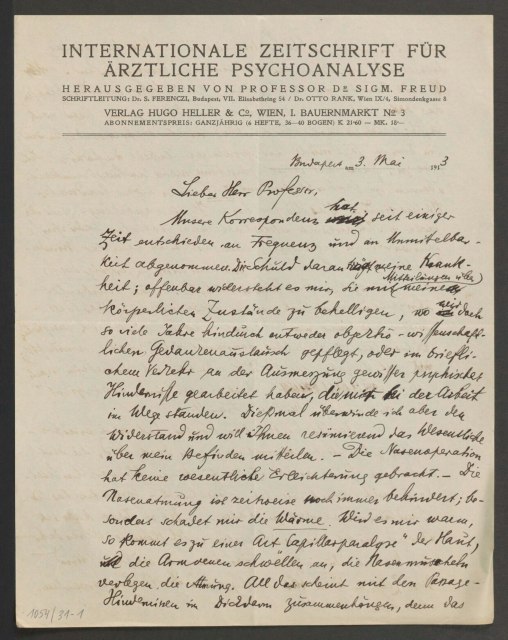 INTERNATIONALE ZEITSCHRIFT FÜR
ÄRZTLICHE PSYCHOANALYSE
HERAUSGEGEBEN VON PROFESSOR DR SIGM. FREUD
SCHRIFTLEITUNG: Dr. S. FERENCZI, Budapest, VII. Elisabethring 54 / Dr. OTTO RANK, Wien IX/4, Simondenkgasse 8
VERLAG HUGO HELLER & Co, WIEN, I. BAUERNMARKT No 3
ABONNEMENTSPREIS: GANZJÄHRIG (6 HEFTE, 36—40 BOGEN) K 21·60 — MK. 18·—
Budapest am 3. Mai 1913
Lieber Herr Professor,
Unsere Korrespondenz hat seit einiger
Zeit entschieden an Frequenz und an Unmittelbar-
keit abgenommen. Die Schuld daran trägt meine Krank-
heit; offenbar widersteht es mir, Sie mit Mitteilungen über meine
körperlichen Zustände zu behelligen, wo wir doch
so viele Jahre hindurch entweder objektiv-wissenschaft-
lichen Gedankenaustausch gepflegt, oder im briefli-
chem Verkehr an der Ausmerzung gewisser psychischer
Hindernisse gearbeitet haben, die mir bei der Arbeit
im Weg standen. Diesmal überwinde ich aber den
Widerstand und will Ihnen resümierend das Wesentliche
über mein Befinden mitteilen. — Die Nasenoperation
hat keine wesentliche Erleichterung gebracht. — Die
Nasenatmung ist zeitweise noch immer behindert; be-
sonders schadet mir die Wärme. Wird es mir warm,
so kommt es zu einer Art „Capillarparalyse" der Haut,
die Armvenen schwellen an, die Nasenmuscheln
verlegen die Atmung. All das scheint mit den Passage-
Hindernissen im Dickdarm zusammenhängen, denn das
1054/31-1